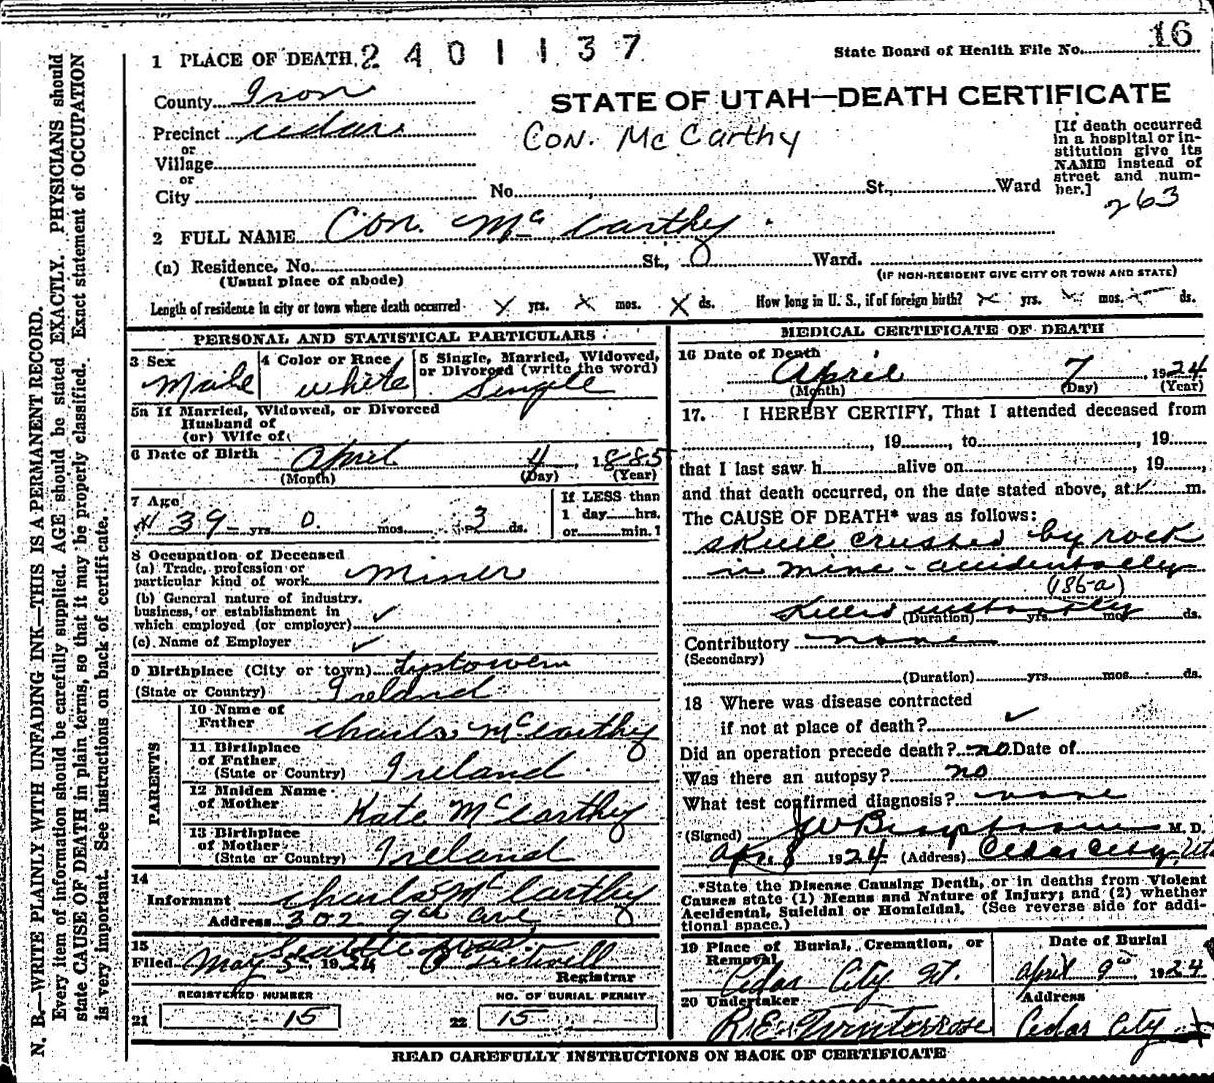 1 PLACE OF DEATH. 2401137
State Board of Health File No. 16
County Iron
STATE OF UTAH—DEATH CERTIFICATE
Precinct Cedar
Con. McCarthy
or
Village
or
City
No. St., Ward
[If death occurred in a hospital or institution give its NAME instead of street and number.]
263
2 FULL NAME Con. McCarthy
(a) Residence, No. St., Ward.
(Usual place of abode) (IF NON-RESIDENT GIVE CITY OR TOWN AND STATE)
Length of residence in city or town where death occurred X yrs. X mos. X ds. How long in U. S., if of foreign birth? X yrs. mos. ds.
PERSONAL AND STATISTICAL PARTICULARS
3 Sex Male
4 Color or Race white
5 Single, Married, Widowed, or Divorced (write the word) Single
5a If Married, Widowed, or Divorced
Husband of
(or) Wife of
6 Date of Birth April 4, 1885
(Month) (Day) (Year)
7 Age 39 yrs. 0 mos. 3 ds.
If LESS than
1 day hrs.
or min.
8 Occupation of Deceased
(a) Trade, profession or
particular kind of work Miner
(b) General nature of industry,
business, or establishment in
which employed (or employer) ✓
(c) Name of Employer ✓
9 Birthplace (City or town) Lystowen
(State or Country) Ireland
PARENTS
10 Name of
Father Charls McCarthy
11 Birthplace
of Father
(State or Country) Ireland
12 Maiden Name
of Mother Kate McCarthy
13 Birthplace
of Mother
(State or Country) Ireland
14
Informant Charls McCarthy
Address 302 9th Ave
Seattle
15
Filed May 5, 1924
Registrar
REGISTERED NUMBER
21 15
NO. OF BURIAL PERMIT
22 15
MEDICAL CERTIFICATE OF DEATH
16 Date of Death April 7, 1924
(Month) (Day) (Year)
17. I HEREBY CERTIFY, That I attended deceased from
, 19 , to , 19
that I last saw h alive on , 19 ,
and that death occurred, on the date stated above, at ✓ m.
The CAUSE OF DEATH* was as follows:
Skull crushed by rock
in mine - accidentally
(186-a)
Killed instantly
(Duration) yrs. mos. ds.
Contributory none
(Secondary)
(Duration) yrs. mos. ds.
18 Where was disease contracted
if not at place of death? ✓
Did an operation precede death? no Date of
Was there an autopsy? no
What test confirmed diagnosis? none
(Signed) M. D.
Apr 8 1924 (Address) Cedar City, Uta
*State the Disease Causing Death, or in deaths from Violent
Causes state (1) Means and Nature of Injury; and (2) whether
Accidental, Suicidal or Homicidal. (See reverse side for addi-
tional space.)
19 Place of Burial, Cremation, or
Removal
Cedar City Ut.
Date of Burial
April 9th, 1924
20 Undertaker
Address
Cedar City
READ CAREFULLY INSTRUCTIONS ON BACK OF CERTIFICATE
N. B.—WRITE PLAINLY WITH UNFADING INK—THIS IS A PERMANENT RECORD.
Every item of information should be carefully supplied. AGE should be stated EXACTLY. PHYSICIANS should
state CAUSE OF DEATH in plain terms, so that it may be properly classified. Exact statement of OCCUPATION
is very important. See instructions on back of certificate.